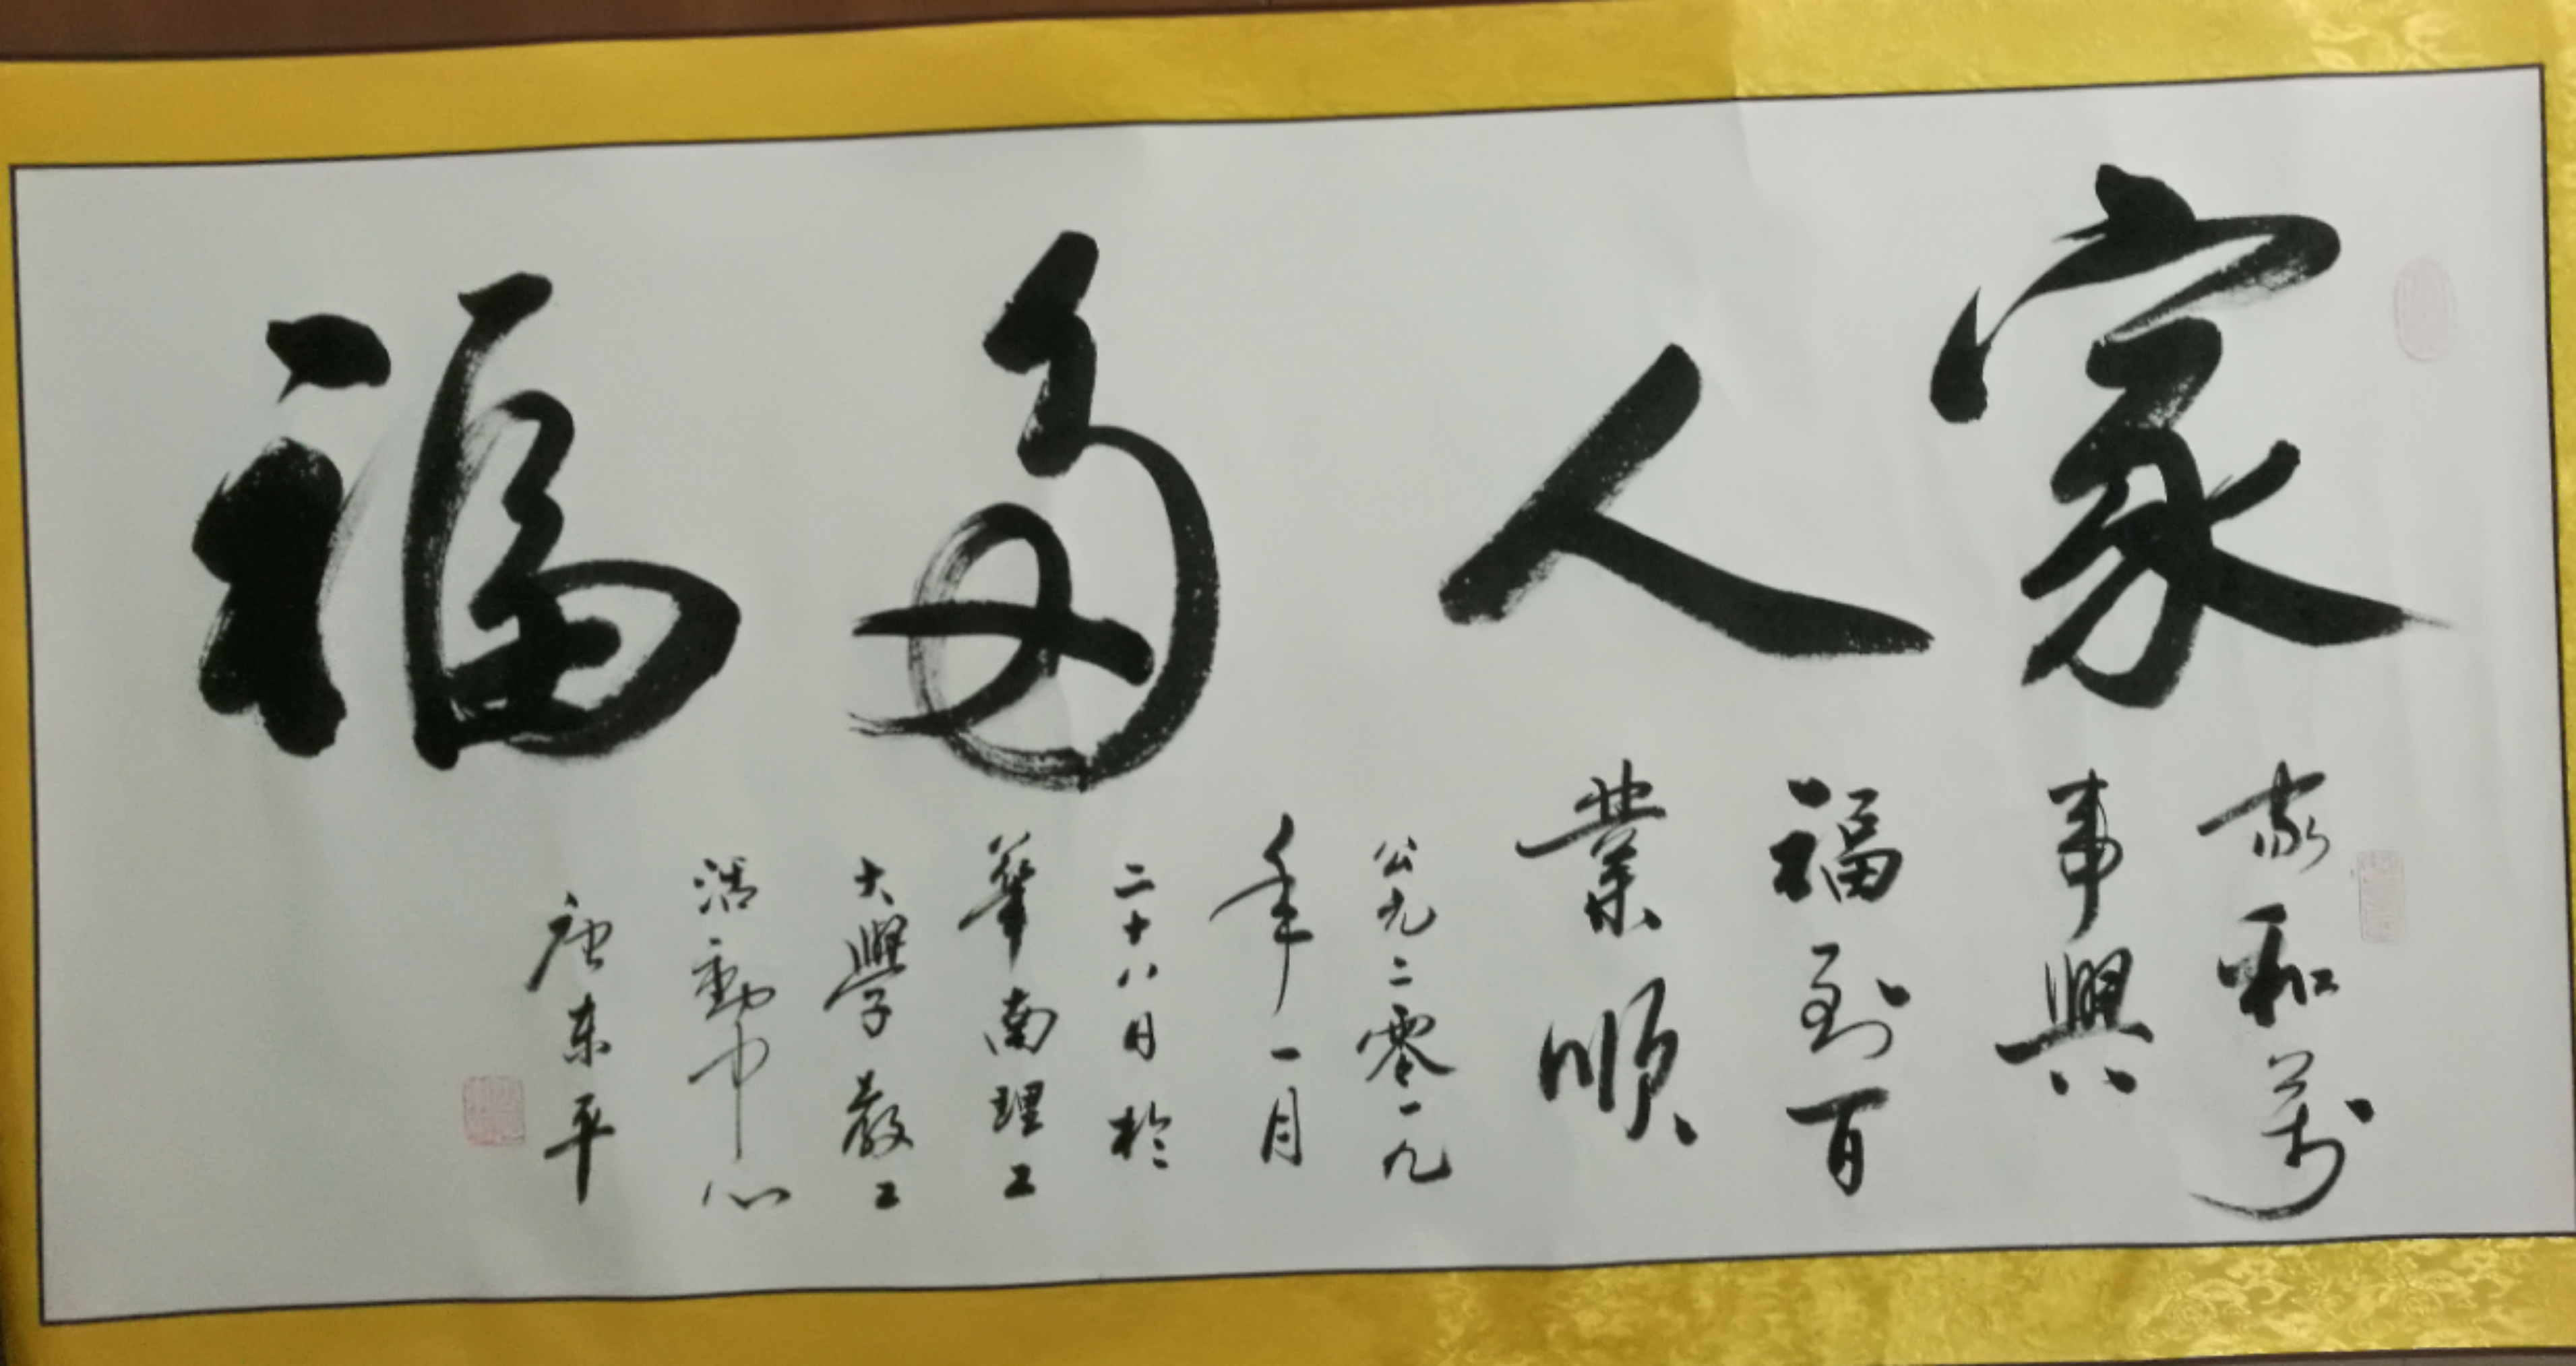 家人多福
家和萬
事興
福到百
業順
公元二零一九
年一月
二十八日於
華南理工
大學教工
活動中心
唐东平